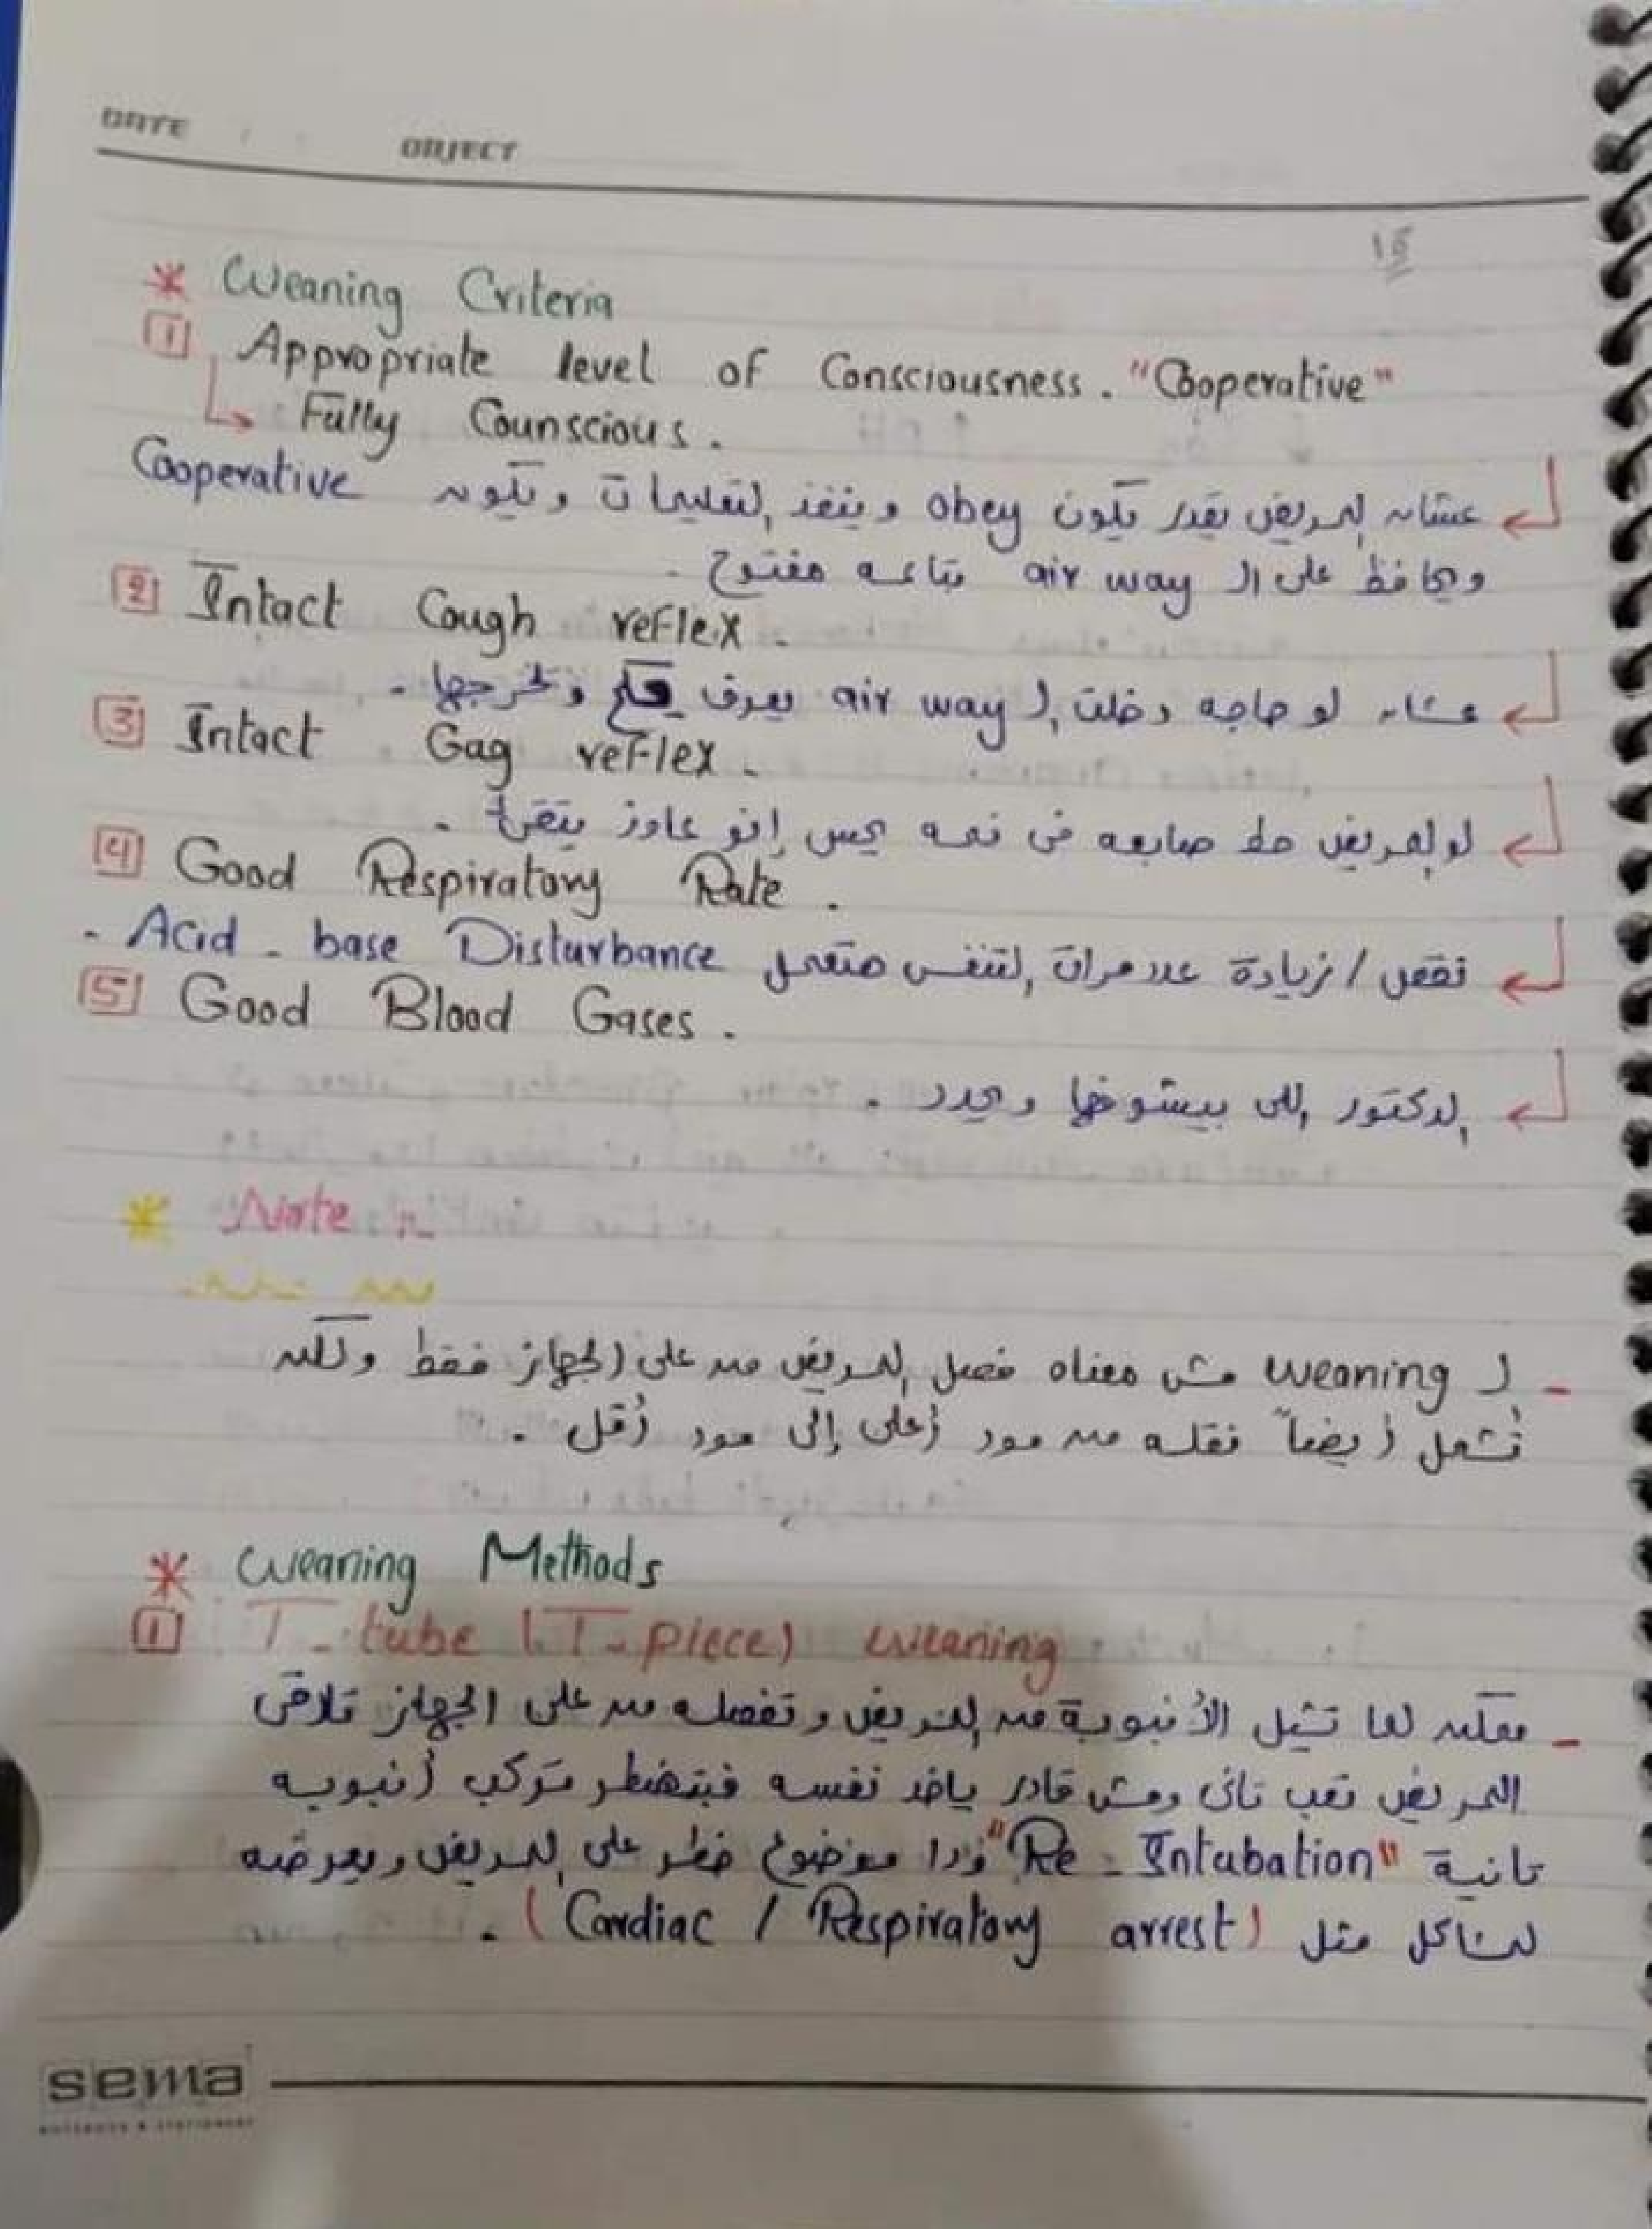 DATE / /
OBJECT
15
* Weaning Criteria
1 Appropriate level of Consciousness. "Cooperative"
↳ Fully Counscious.
عشان المريض يقدر يكون obey وينفذ التعليمات ويكون Cooperative
ويحافظ على الـ air way بتاعه مفتوح.
2 Intact Cough reflex.
عشان لو حاجه دخلت الـ air way يعرف يكح وتخرجها.
3 Intact Gag reflex.
لو المريض حط صابعه في فمه يحس إنو عاوز يتقيأ.
4 Good Respiratory Rate.
نقص / زيادة عدد مرات التنفس هتعمل Acid - base Disturbance.
5 Good Blood Gases.
الدكتور اللى بيشوفها ويحدد.
* Note :-
- الـ weaning مش معناه فصل المريض من على الجهاز فقط ولكن
تشمل أيضاً نقله من مود أعلى إلى مود أقل.
* Weaning Methods
1 T-tube (T-piece) weaning
- ممكن لما تشيل الأنبوبة من المريض وتفصله من على الجهاز تلاقى
المريض تعب تانى ومش قادر ياخد نفسه فبتضطر تركب أنبوبه
تانية "Re-Intubation" ودا موضوع خطر على المريض ويعرضه
لمشاكل مثل (Cardiac / Respiratory arrest).
sema